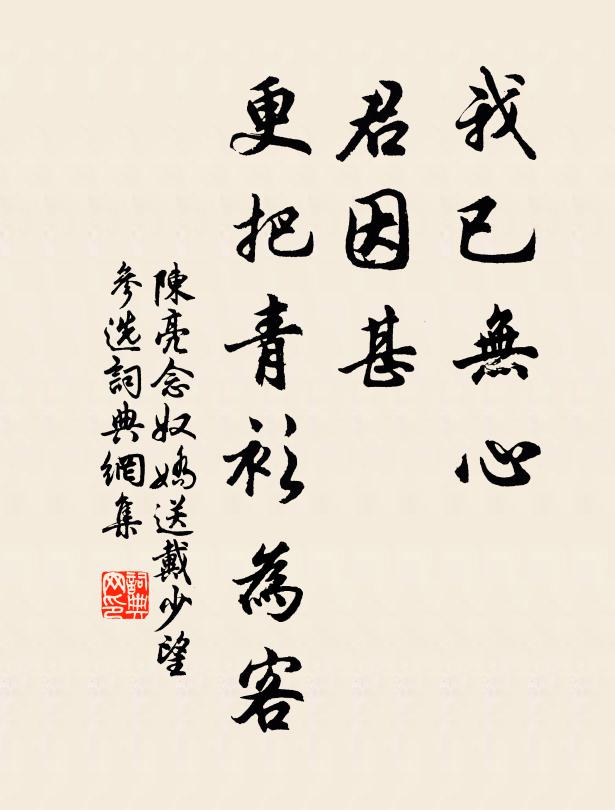 我已無心
君因甚
更把青衫為客
陳亮念奴嬌送戴少望
參选詞典網集
詞典网印